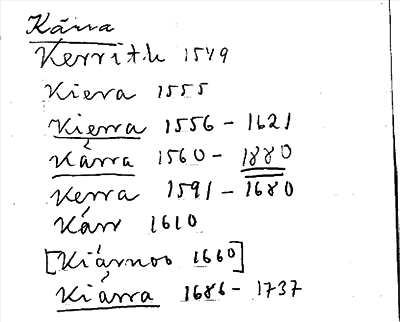 Kárra
Kerrith 1549
Kiera 1555
Kierra 1556 - 1621
Kárra 1560 - 1880
Kerra 1591 - 1680
Kárr 1610
[Kiárnoo 1660]
Kiárra 1686 - 1737